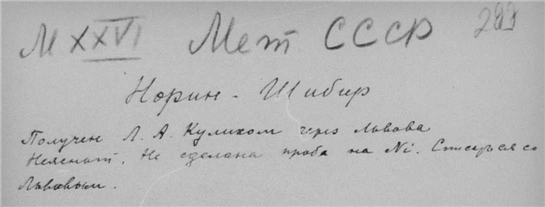 М XXVI Мет СССР 299
Норин - Шибир
Получен Л. А. Куликом через Львова
Неясный. Не сделана проба на Ni. Списаться со
Львовым.